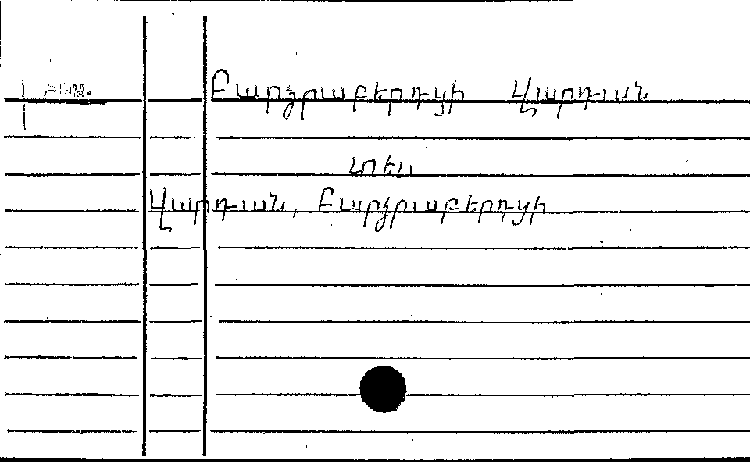 Բարձրաբերդցի Վարդան
տես
Վարդան, Բարձրաբերդցի